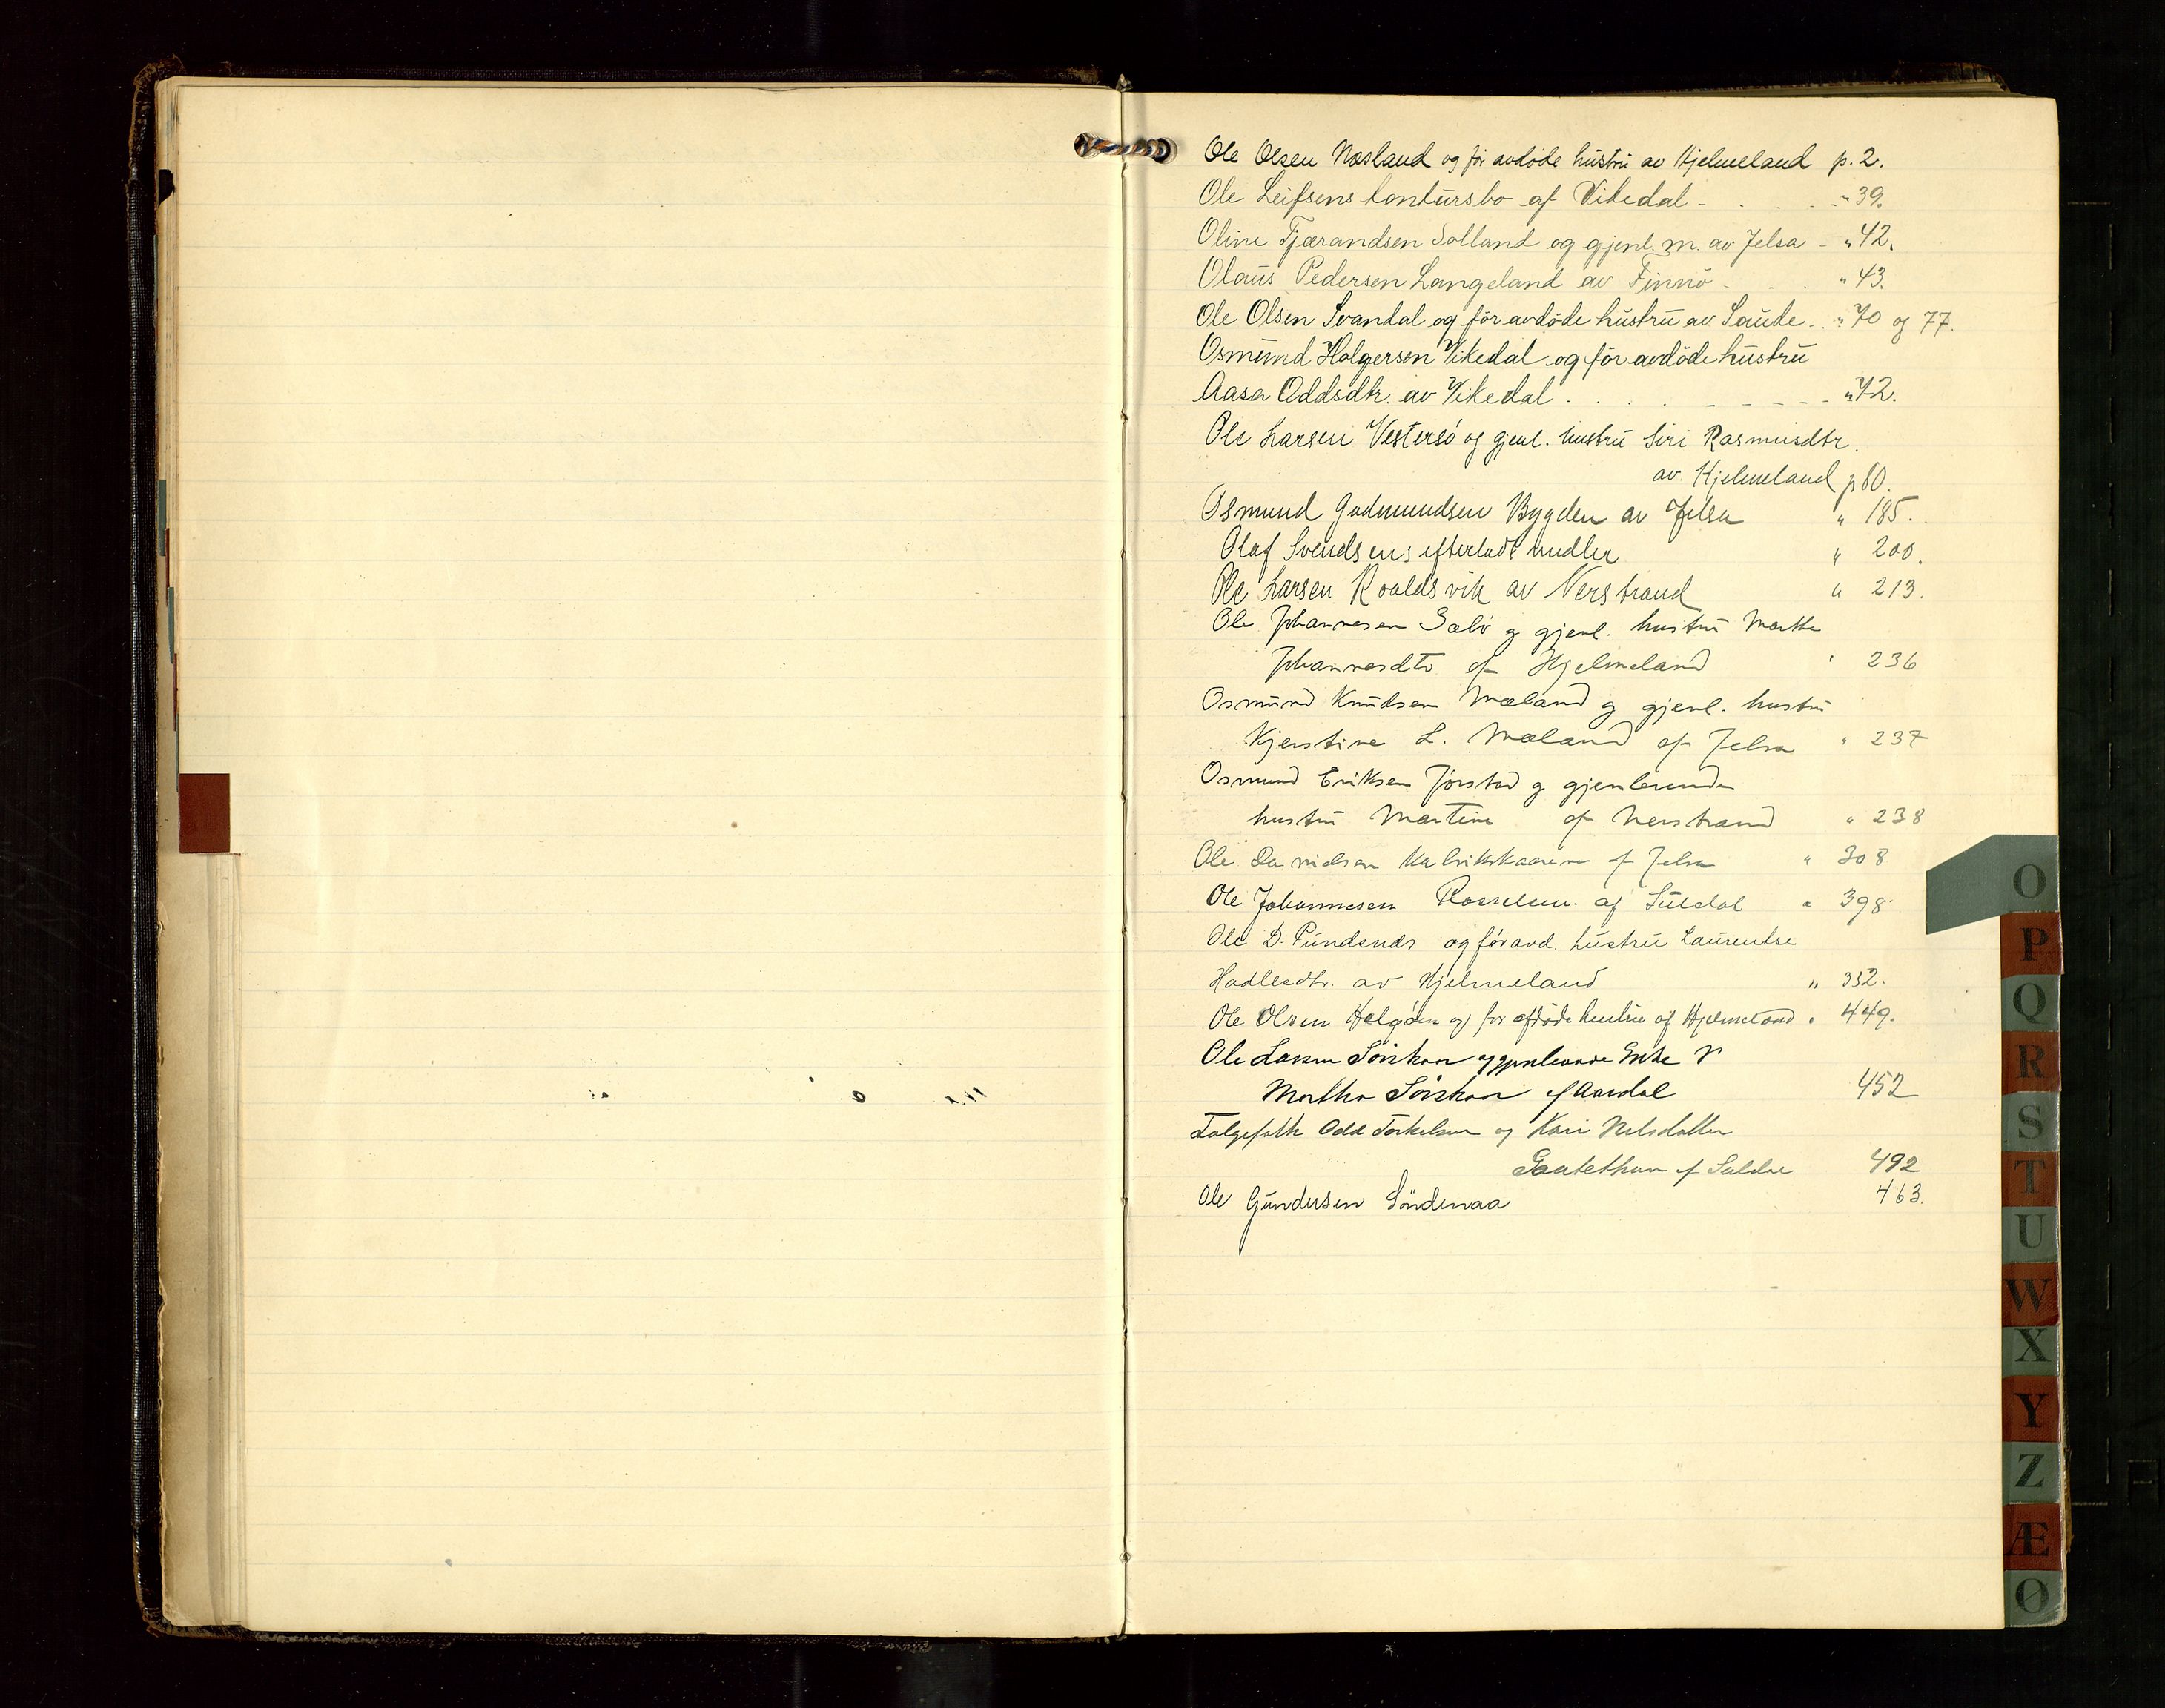 Ole Olsen Næsland og før avdøde hustru av Hjelmeland p. 2.
Ole Leifsens konkursbo af Vikedal - . . . - " 39.
Oline Tjærandsen Solland og gjenl. m. av Jelsa - " 42.
Olaus Pedersen Langeland av Finnö - . . " 43.
Ole Olsen Svandal og før avdøde hustru av Saude . . " 70 og 77.
Osmund Holgersen Vikedal og før avdøde hustru
Aasa Oddsdtr. av Vikedal . . . . - - - - - " 72.
Ole Larsen Vestersø og gjenl. hustru Siri Rasmusdtr.
av Hjelmeland p 80.
Osmund Gudmundsen Bygden av Jelsa " 185.
Olaf Svendsens efterladte midler " 200.
Ole Larsen Roaldsvik av Nerstrand " 213.
Ole Johannesen Sælø og gjenl. hustru Marthe
Johannesdtr af Hjelmeland " 236
Osmund Knudsen Mæland og gjenl. hustru
Kjerstine L. Mæland af Jelsa " 237
Osmund Eriksen Jørstad og gjenlevende
hustru Martine af Nerstrand " 238
Ole Davidsen af Jelsa " 308
Ole Johannesen af Suldal " 398.
Ole D. Pundsnes og før avd. hustru Laurentse
Hadlesdtr. av Hjelmeland " 332.
Ole Olsen Helgøen og før afdøde hustru af Hjelmeland " 449.
Ole Larsen Sørskaar og gjenlevende Enke
Martha Sørskaar af Aardal 452
Folgefolk Odd Torkelsen og Kari Nelsdatter
af Suldal 492
Ole Gundersen Söndenaa 463.
O
P
Q
R
S
T
U
W
X
Y
Z
Æ
Ø